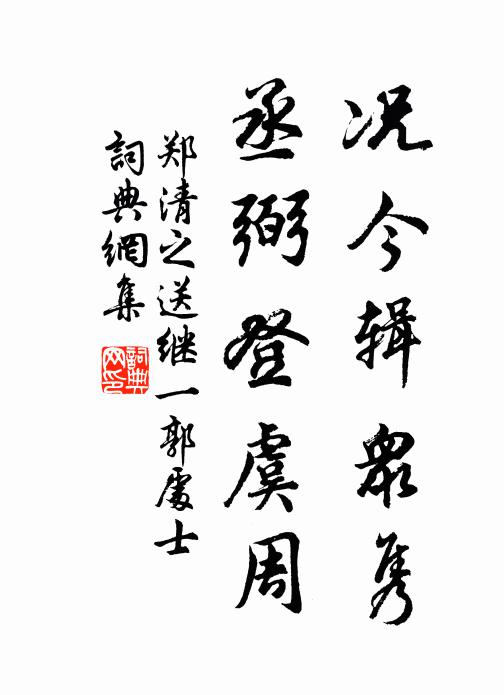 况今辑眾隽
丞弼登虞周
郑清之送继一郭處士
詞典網集
詞典網印